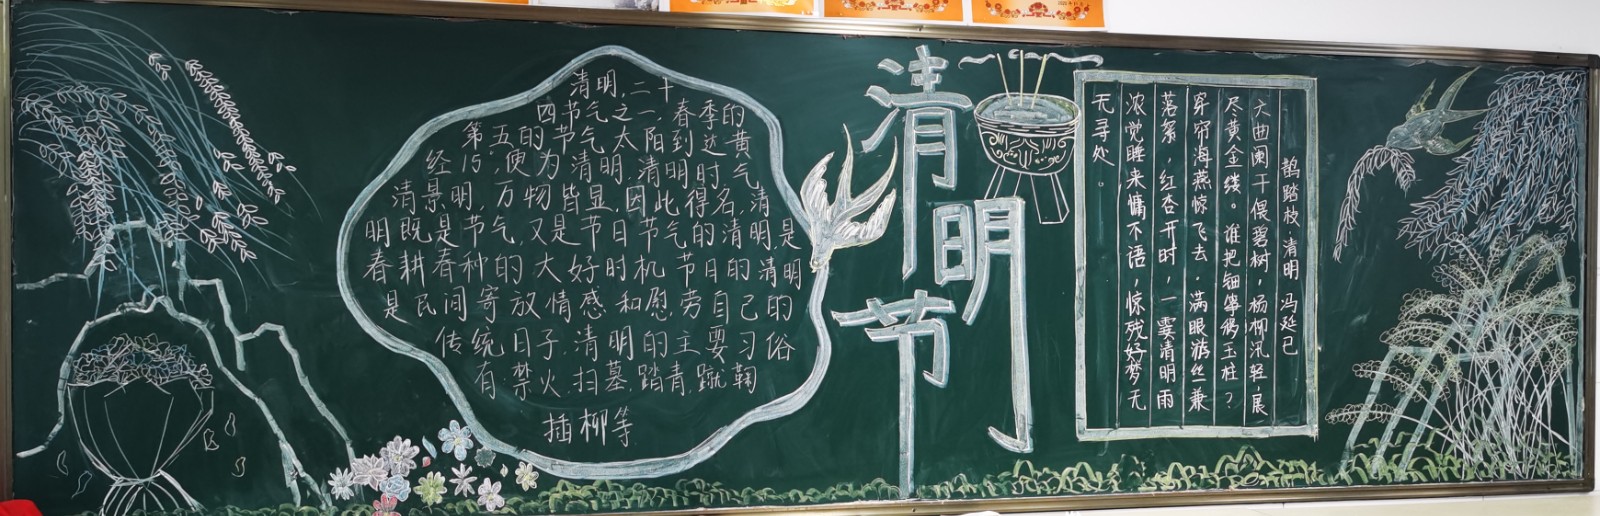 清明,二十
四节气之一,春季的
第五的节气,太阳到达黄
经15,使为清明.清明时,气
清景明,万物皆显,因此得名,清
明既是节气,又是节日节气的清明是
春耕春种的大好时机 节日的清明
是民间寄放情感和慰劳自己的
传统日子.清明的主要习俗
有:禁火.扫墓.踏青.蹴鞠
插柳等
清明节
鹊踏枝·清明 冯延己
六曲阑干偎碧树,杨柳汛轻,展
尽黄金缕。谁把钿筝移玉柱?
穿帘海燕惊飞去,满眼游丝兼
落絮,红杏开时,一霎清明雨
浓觉睡来慵不语,惊残好梦无
无寻处。